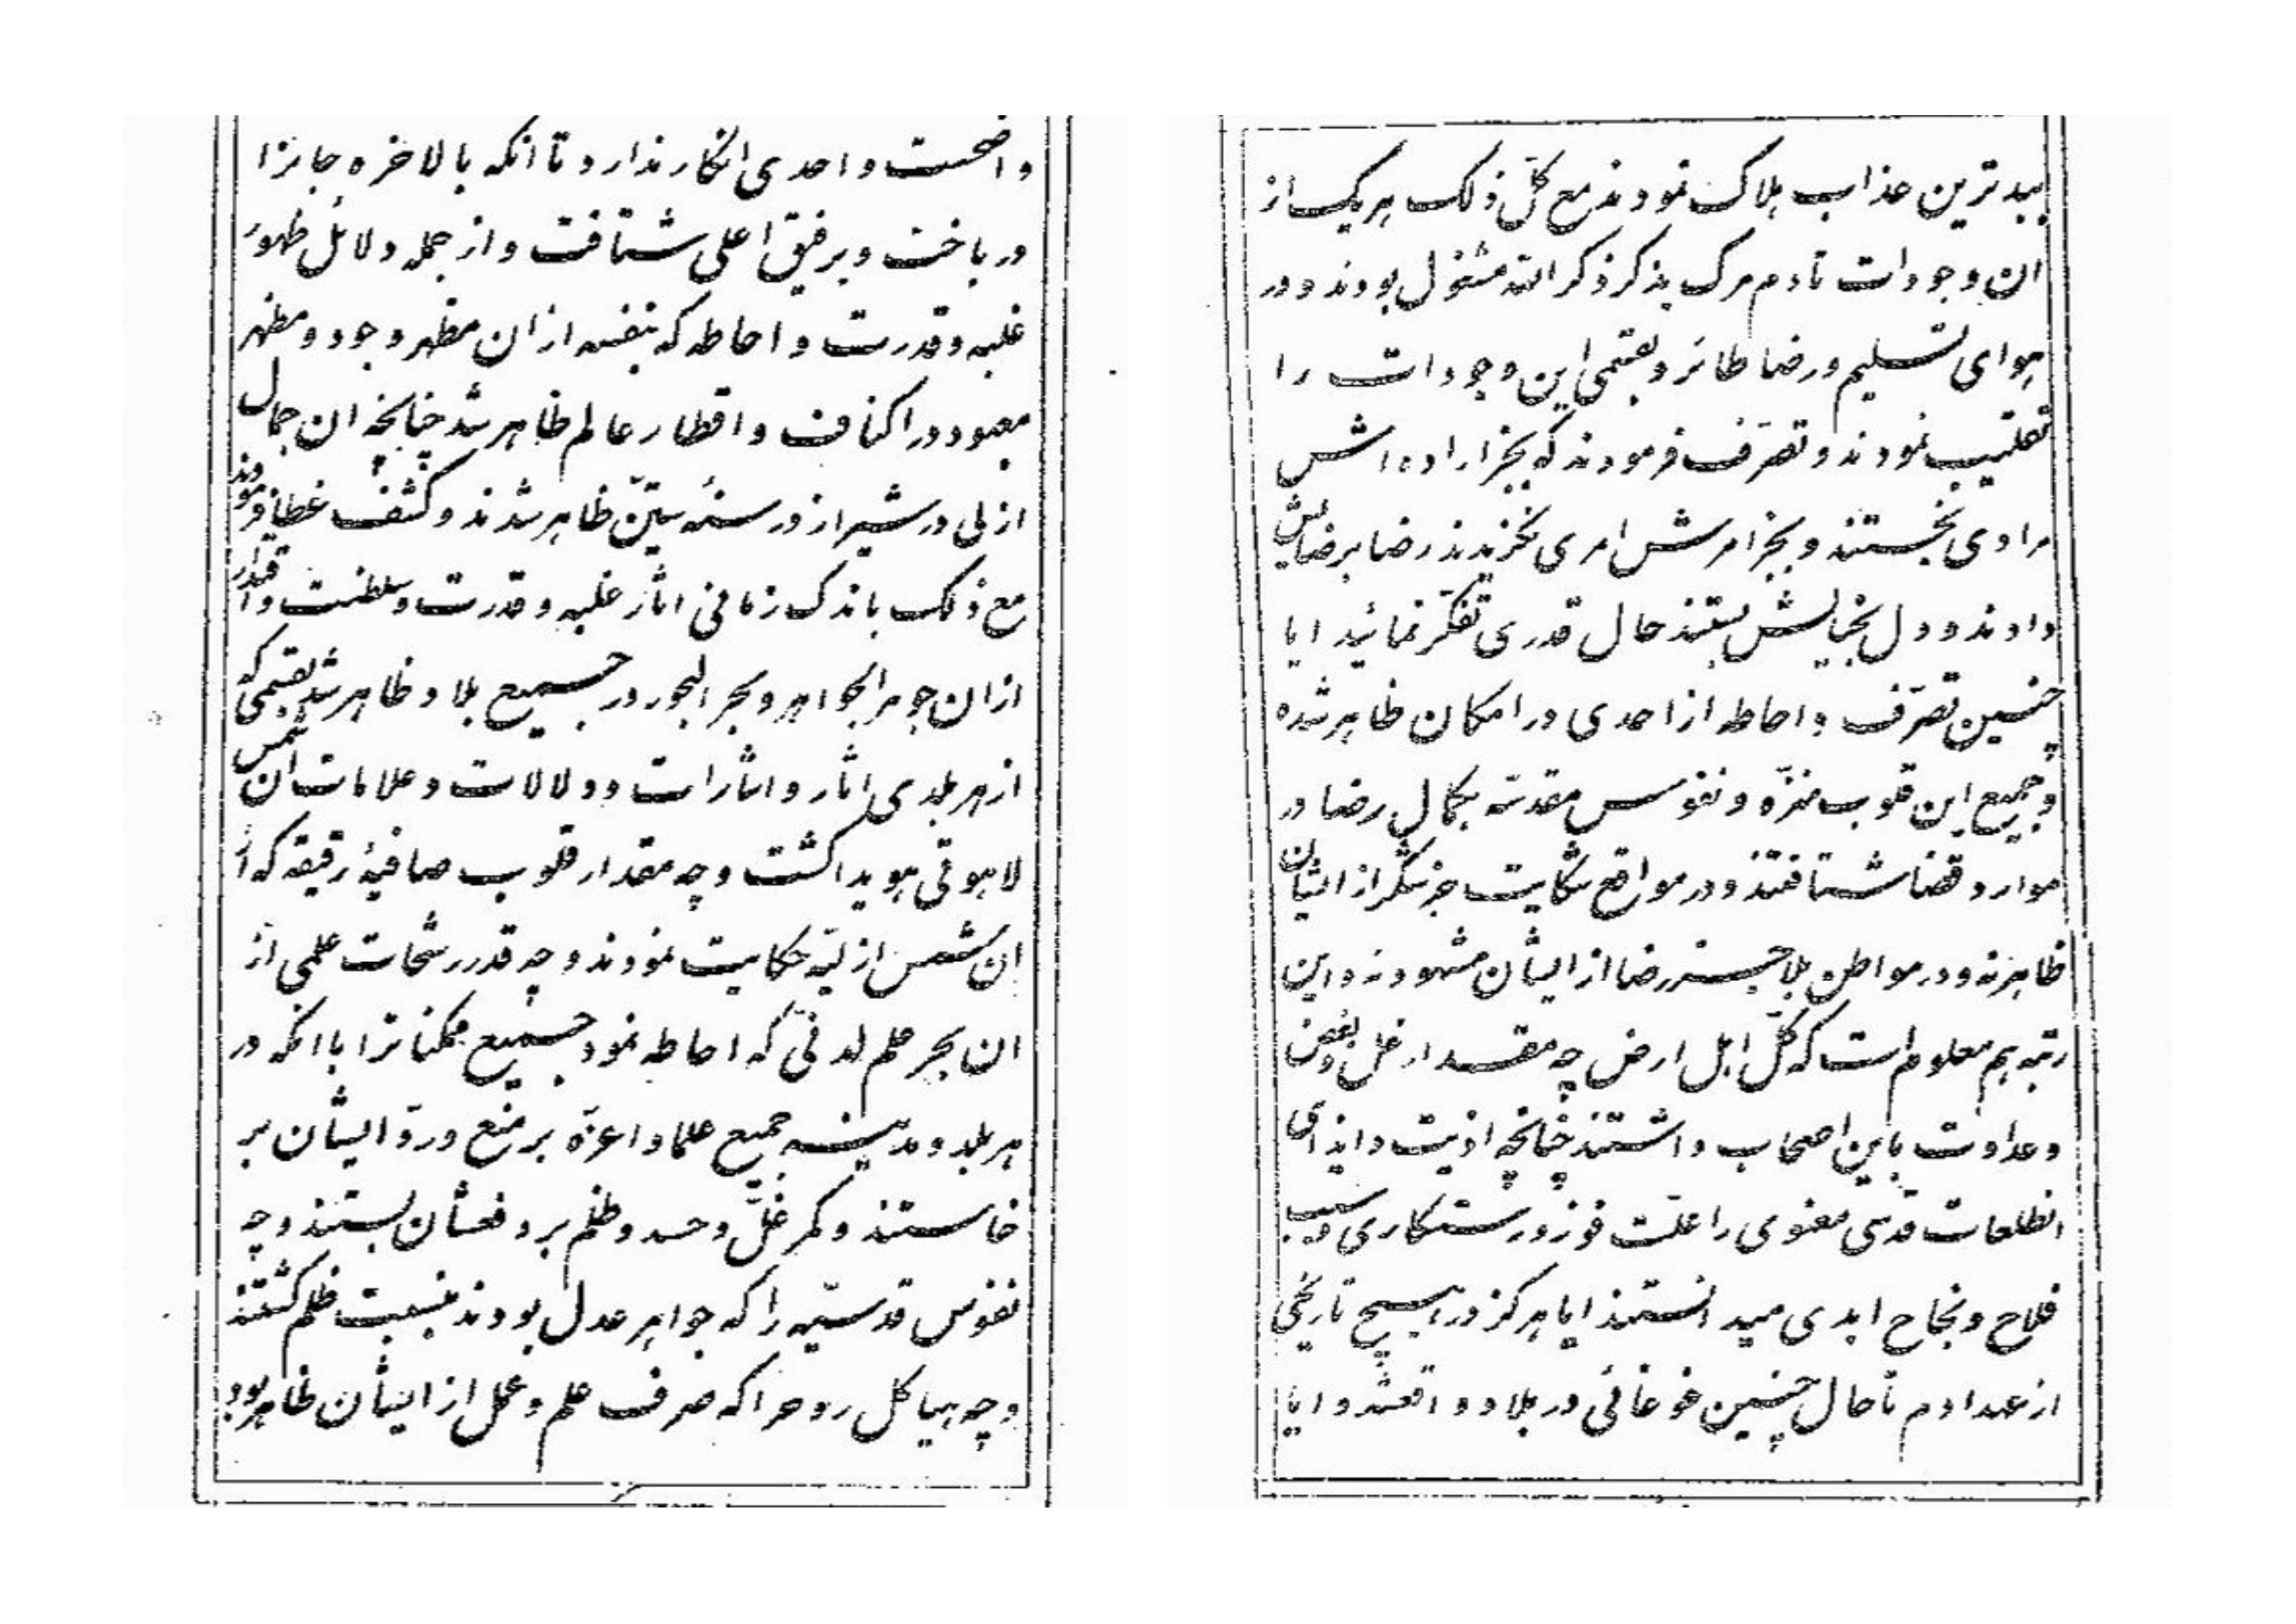 واضحست و احدی انکار ندارد تا انکه بالاخره جانرا
در باخت و برفیق اعلی شتافت و از جمله دلائل ظهور
غلبه و قدرت و احاطه که بنفسه از ان مظهر وجود و مظهر
معبود در اکناف و اقطار عالم ظاهر شد چنانچه ان جمال
ازلی در شیراز در سنه ستّین ظاهر شدند و کشف غطا فرمودند
مع ذلک باندک زمانی اثار غلبه و قدرت و سلطنت و اقتدار
از ان جوهر الجواهر و بحر البحور در جمیع بلاد ظاهر شد بقسمی که
از هر بلدی اثار و اشارات و دلالات و علامات ان شمس
لاهوتی هویدا گشت و چه مقدار قلوب صافیۀ رقیقه که از
ان شمس ازلیّه حکایت نمودند و چه قدر رشحات علمی از
ان بحر علم لدنّی که احاطه نمود جمیع ممکنا ترا با انکه در
هر بلد و مدینه جمیع علما و اعزّه بر منع و ردّ ایشان بر
خاستند و کمر غلّ و حسد و ظلم بر دفعشان بستند و چه
نفوس قدسیّه را که جواهر عدل بودند بنسبت ظلم کشتند
و چه هیاکل روح را که صرف علم و عمل از ایشان ظاهر بود
ببدترین عذاب هلاک نمودند مع کلّ ذلک هر یک از
ان وجودات تا دم مرک بذکر ذکر اللّه مشغول بودند و در
هوای تسلیم و رضا طائر و بقسمی این وجودات را
تقلیب نمودند و تصرّف فرمودند که بجز اراده اش
مرادی نجستند و بجز امرش امری نگزیدند رضا برضایش
دادند و دل بخیالش بستند حال قدری تفکّر نمائید ایا
چنین تصرّف و احاطه از احدی در امکان ظاهر شده
و جمیع این قلوب منزّه و نفوس مقدّسه بکمال رضا در
موارد قضا شتافتند و در مواقع شکایت جز شکر از ایشان
ظاهر نه و در مواطن بلا جز رضا از ایشان مشهود نه و این
رتبه هم معلوم است که کلّ اهل ارض چه مقدار غل و بغض
و عداوت باین اصحاب داشتند چنانچه اذیت و ایذای
انطلعات قدسی معنوی را علّت فوز و رستگاری و سبب
فلاح و نجاح ابدی میدانستند ایا هرگز در هیچ تاریخی
از عهد ادم تا حال چنین غوغائی در بلاد واقع شد و ایا